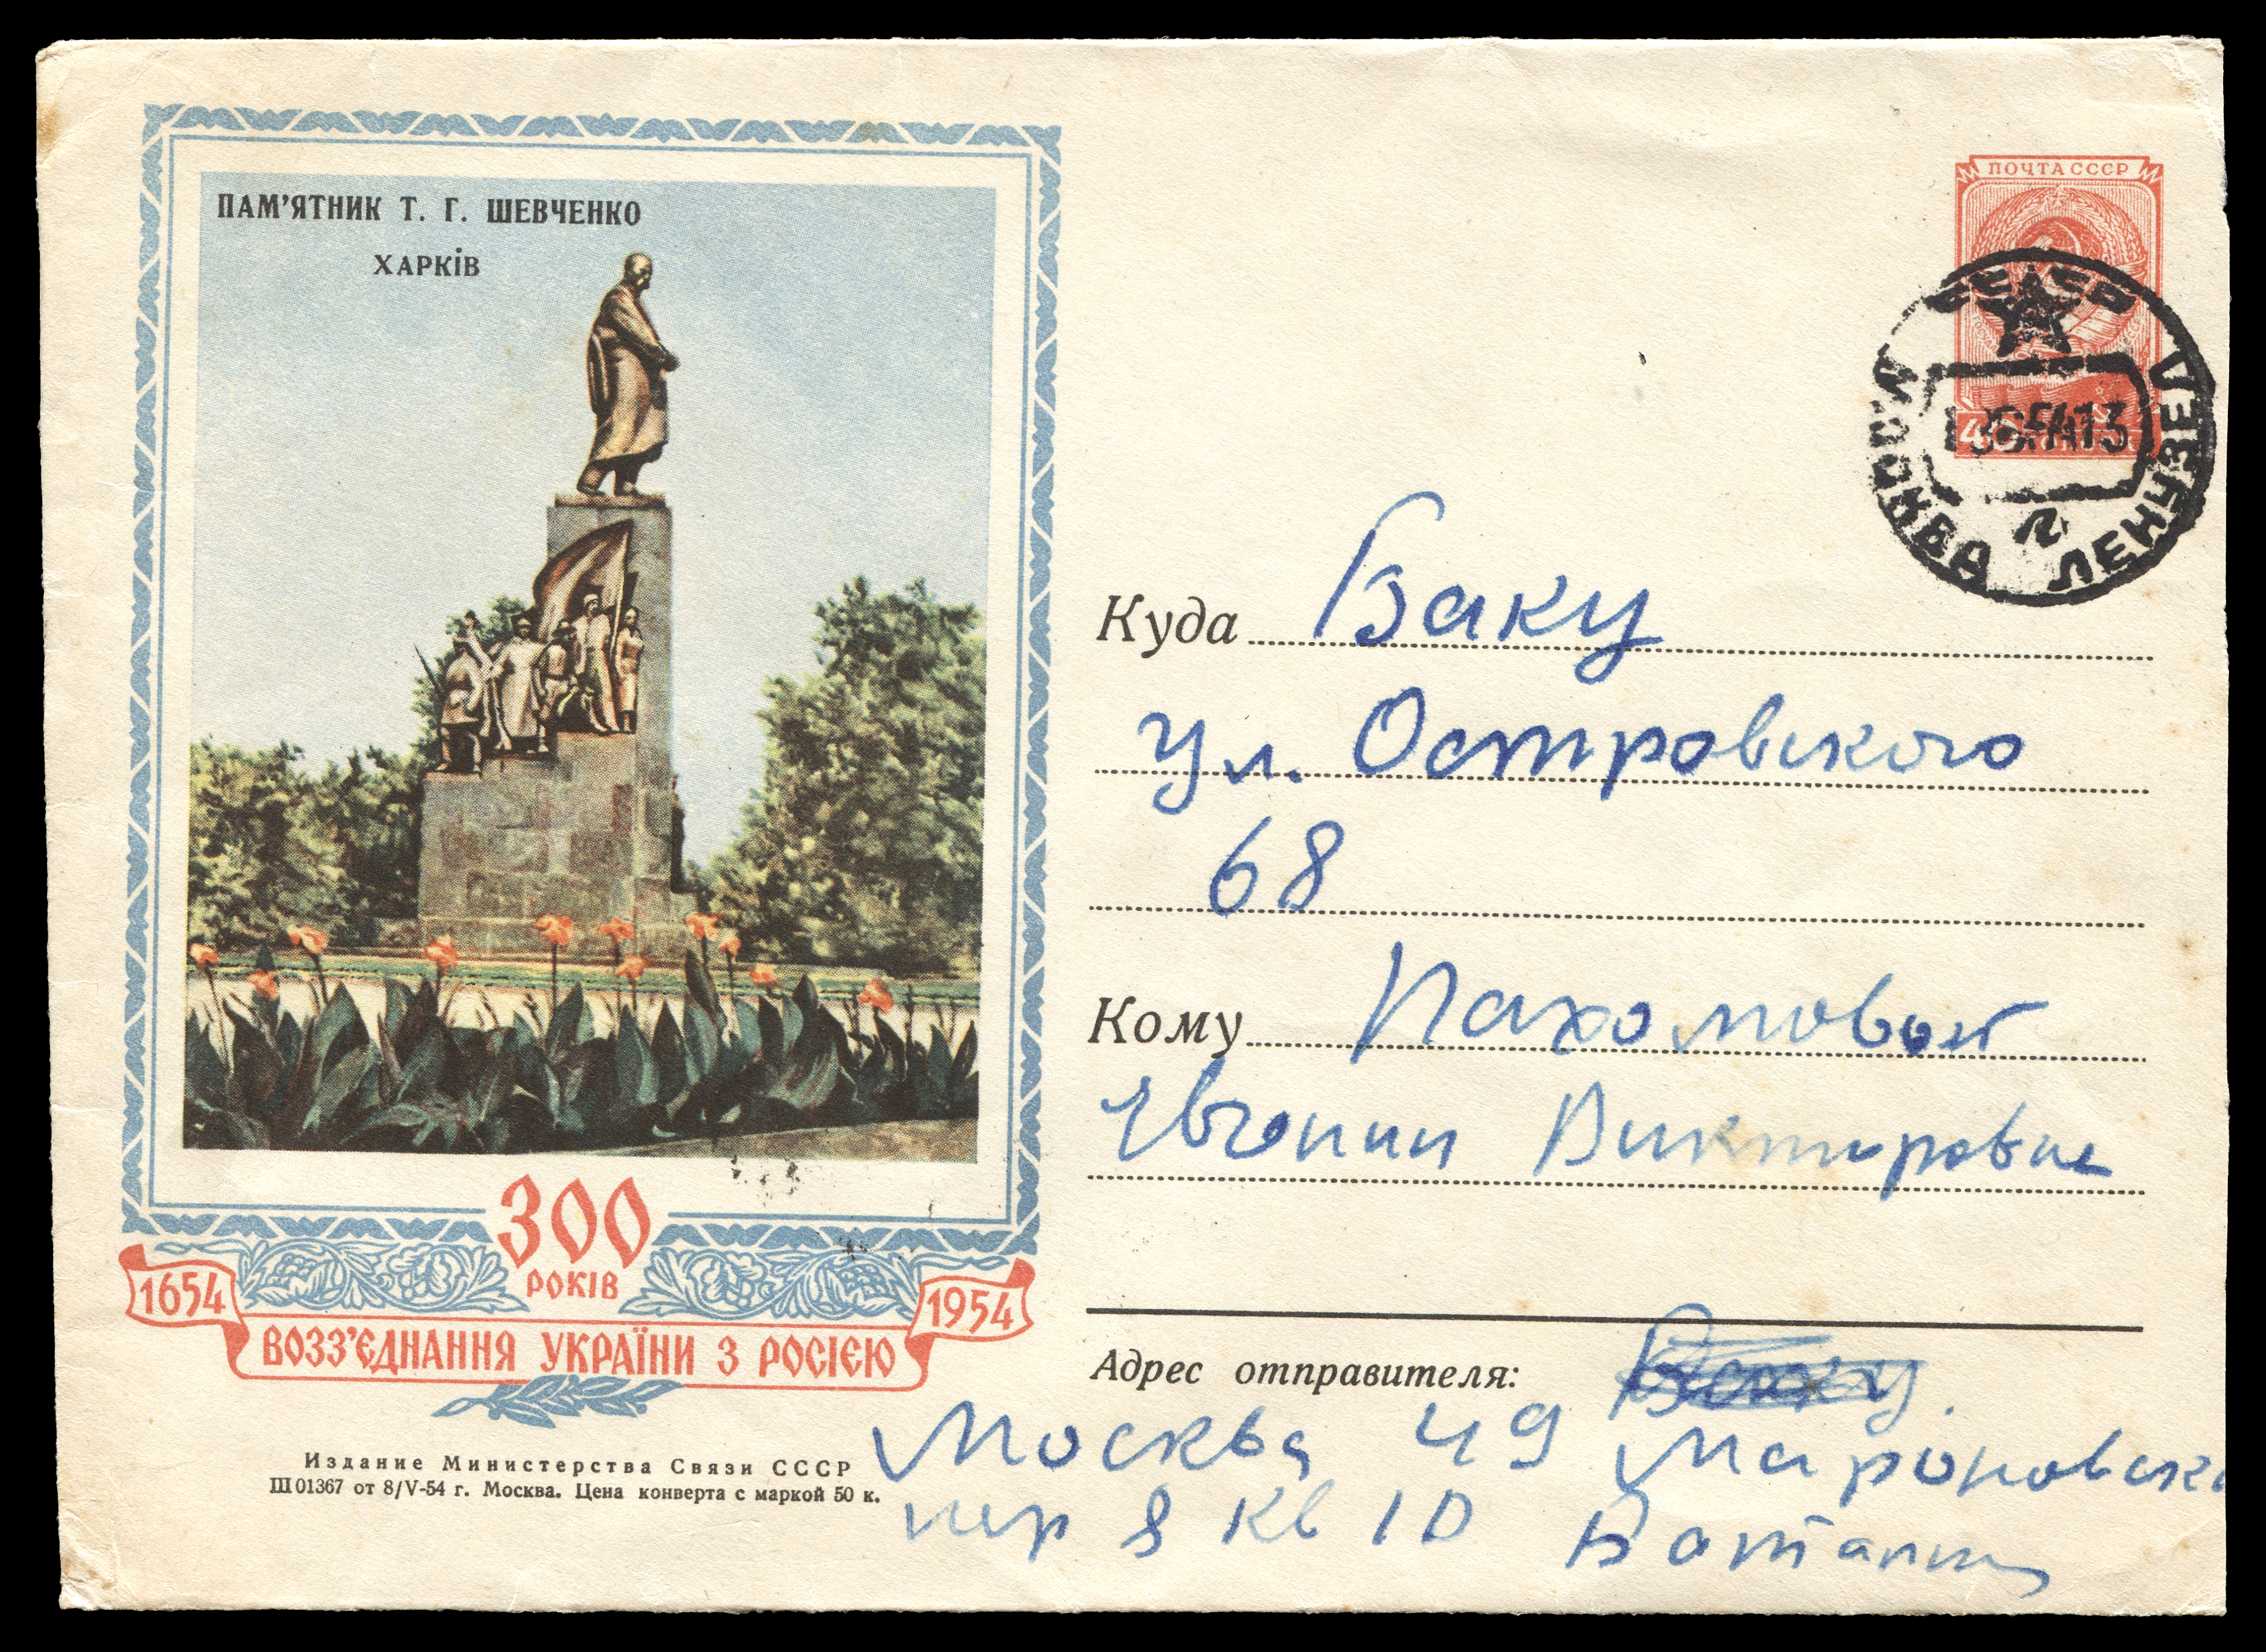 ПАМ'ЯТНИК Т. Г. ШЕВЧЕНКО
ХАРКІВ
300
РОКІВ
1654
1954
ВОЗЗ'ЄДНАННЯ УКРАЇНИ З РОСІЄЮ
Издание Министерства Связи СССР
Ш 01367 от 8/V-54 г. Москва. Цена конверта с маркой 50 к.
ПОЧТА СССР
МОСКВА
Куда Баку
ул. Островского
68
Кому Пахомовой
Евгении Викторовне
Адрес отправителя:
Москва 49
пер 8 кв 10